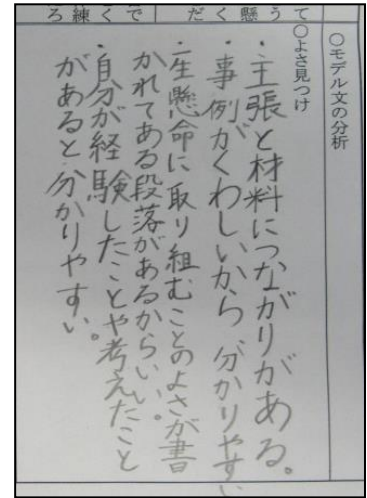 ○モデル文の分析
○よさ見つけ
・主張と材料につながりがある。
・事例がくわしいから分かりやすい
・一生懸命に取り組むことのよさが書
かれてある段落があるからいい。
・自分が経験したことや考えたこと
があると分かりやすい。
て
う
懸
く
だ
で
く
練
ろ